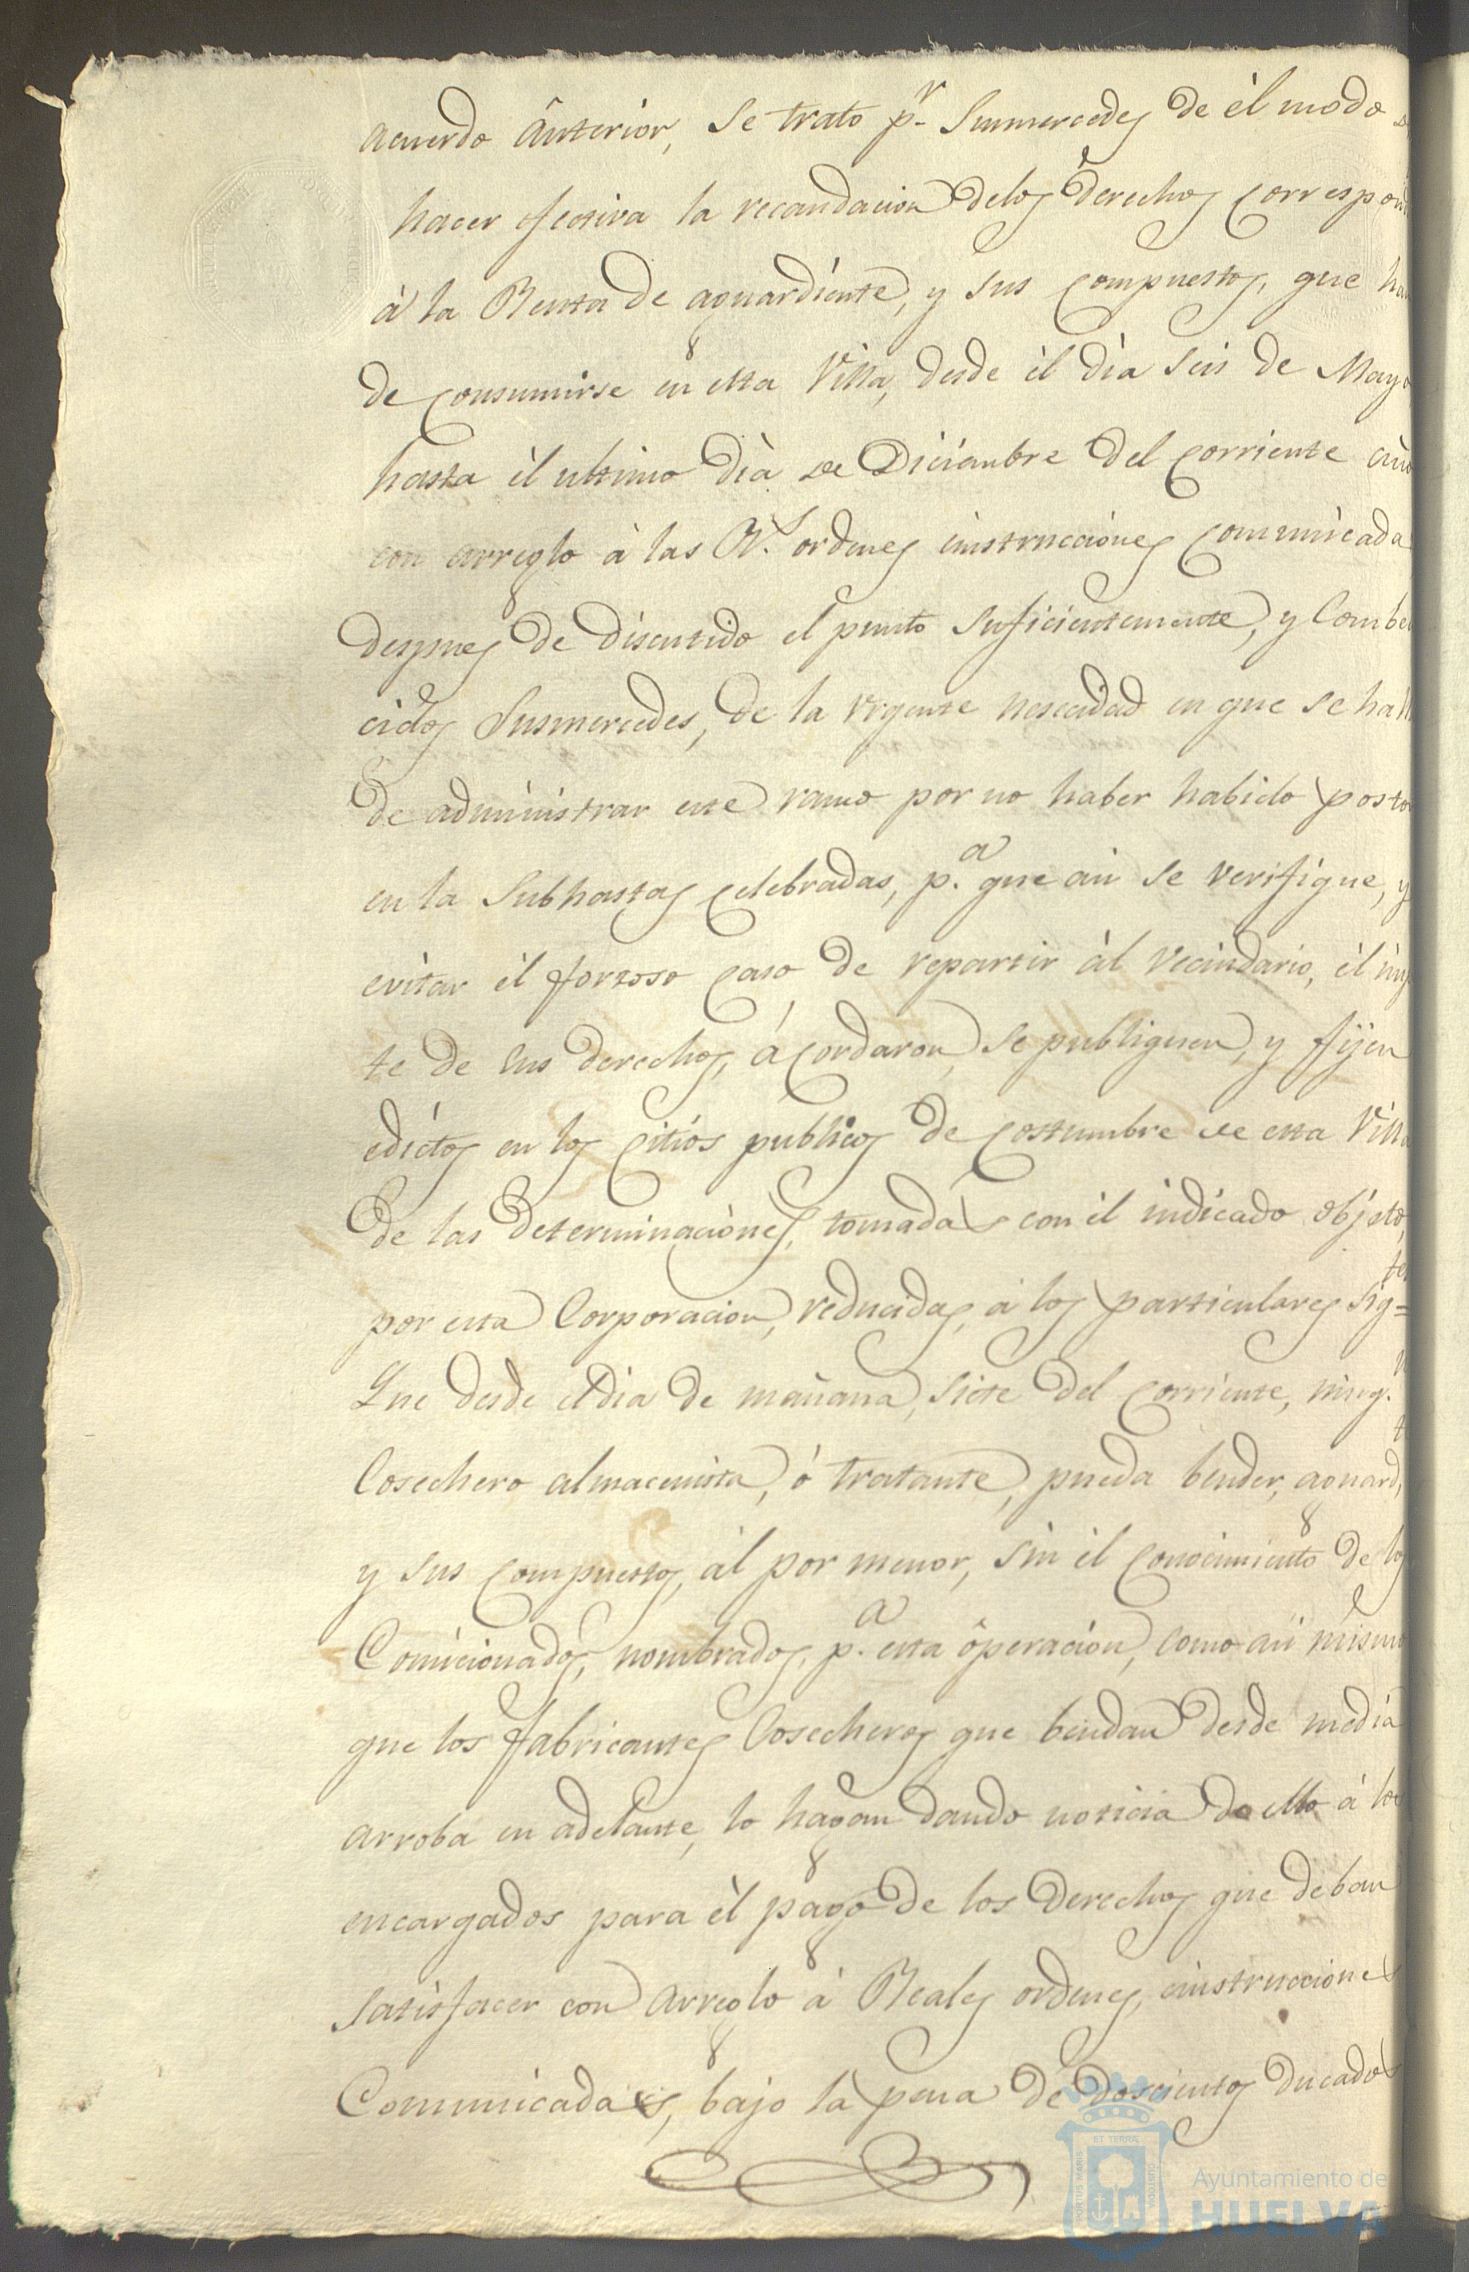 acuerdo ânterior, se trato p.r Susmercedes de él modo de
hacer efectiva la recaudacion delos derechos correspond
à la Renta de aguardiente, y sus compuestos, que han
de consumirse en esta Villa, desde èl dìa seis de Mayo
hasta èl ultimo dìa de Diciembre del corriente año
con arreglo à las R.s ordenes einstrucciónes comunicada
despues de discutido el punto suficientemente, y Combe
cidos Susmercedes, de la urgente nesecidad en que se hall
de administrar este ramo por no haber habido posto
en la Subhastas celebradas, p.a que asi se verifique, y
evitar èl forzoso caso de repartir àl vecindario, èl imp
te de sus derechos, ácordaron se publiquen, y fijen
edictos en los Citios publicos de costumbre de esta Villa
de las determinaciònes, tomadas con èl indicado objeto,
por esta Corporacion, reducidas, à los particulares sig=tes
Que desde eldia de mañana, siete del corriente, ning.n
Cosechero almacenista, ó tratante, pueda bender, aguard.te
y sus compuestos, àl por menor, sin èl conocimiento de los
Comicionados, nombrados, p.a esta ôperaciòn, como asi mismo
que los fabricantes Cosecheros que bendan desde media
arroba en adelante, lo hagan dando noticia de ello á los
encargados para èl pago de los derechos que deban
satisfacer con arreglo à Reales ordenes, einstrucciones
Comunicadas, bajo la pena de doscientos ducados
ET TERRÆ
PORTUS MARIS
CUSTODIA
Ayuntamiento de
HUELVA